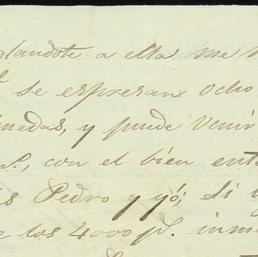 glandote a ella me
se espresan ocho
nedas, y puede venir
con el bien ente
Pedro y yó; si
los 4000 p.